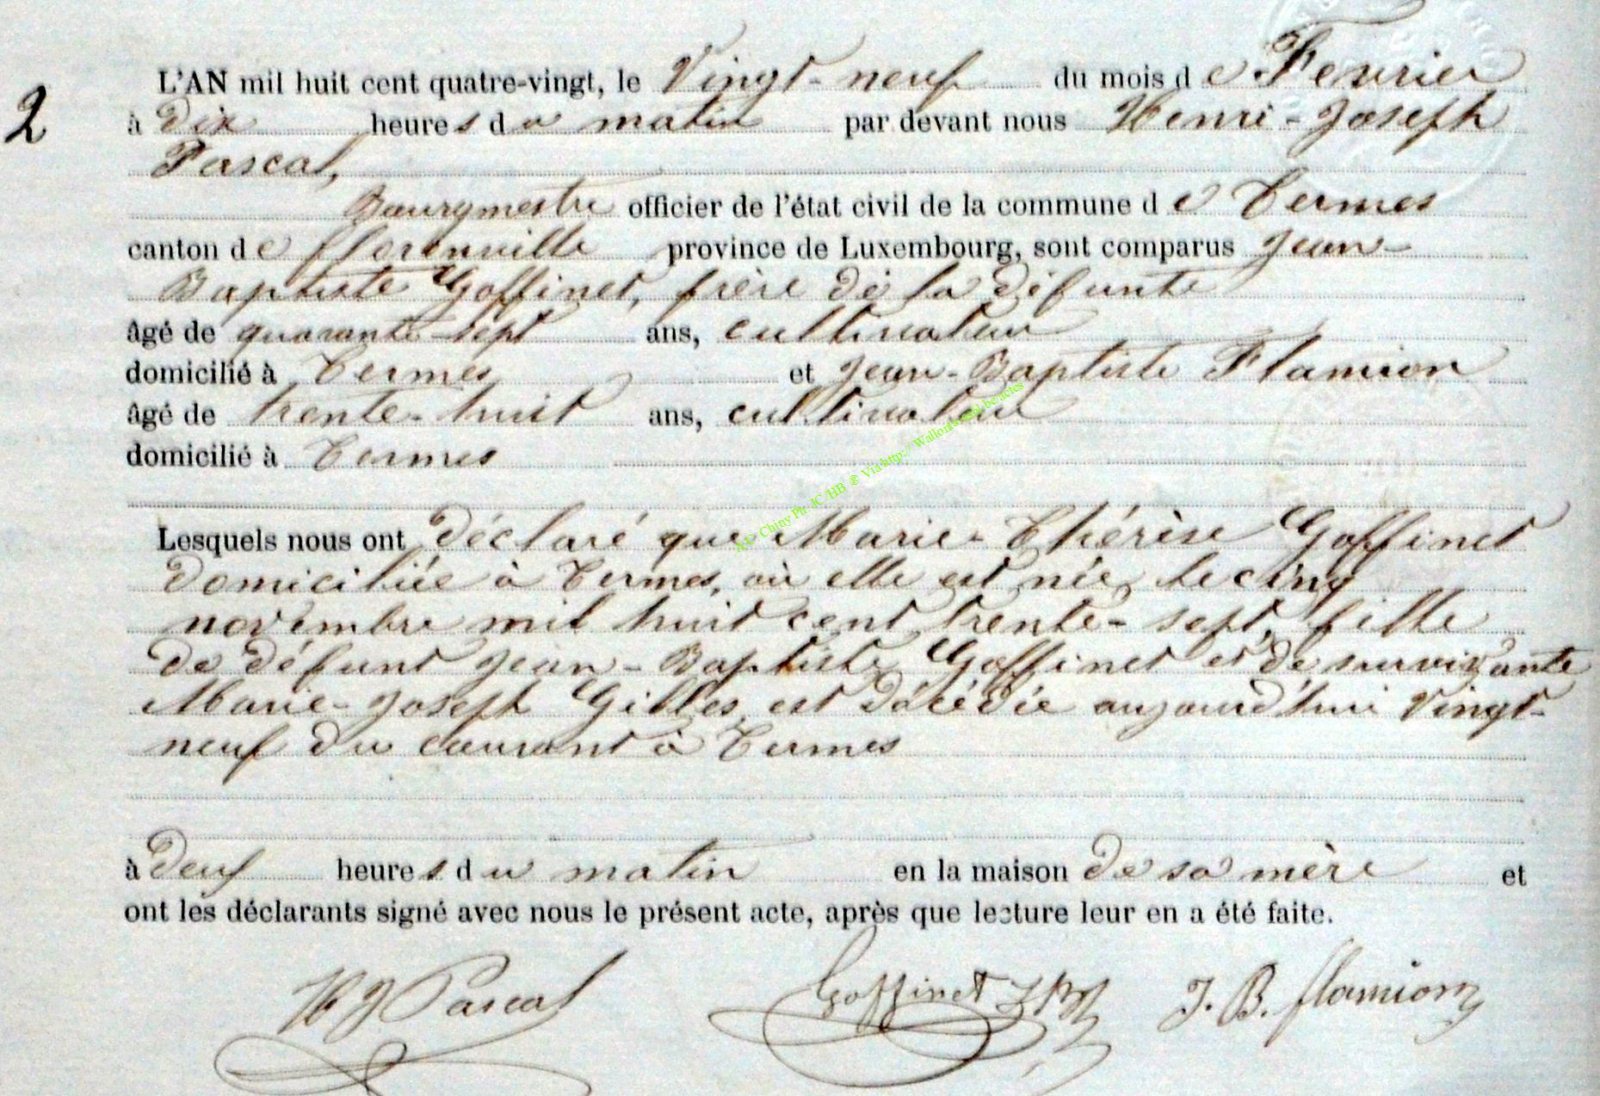 2
L'AN mil huit cent quatre-vingt, le Vingt-neuf du mois de Fevrier
à dix heures du matin par devant nous Henri-Joseph
Pascal,
Bourgmestre officier de l'état civil de la commune de Termes
canton de Florenville province de Luxembourg, sont comparus Jean-
Baptiste Goffinet, frère de la défunte
âgé de quarante-sept ans, cultivateur
domicilié à Termes et Jean-Baptiste Flamion
âgé de trente-huit ans, cultivateur
domicilié à Termes
Lesquels nous ont déclaré que Marie-Thérèse Goffinet
domiciliée à Termes, où elle est née, le cinq
novembre mil huit cent trente-sept, fille
de défunt Jean-Baptiste Goffinet et de survivante
Marie-Joseph Gilles, est décédée aujourd'hui Vingt-
neuf du courant à Termes
à deux heures du matin en la maison de sa mère et
ont les déclarants signé avec nous le présent acte, après que lecture leur en a été faite.
H J Pascal Goffinet J Bt J. B. flamion
Chiny Ph JC HB ® Via http://